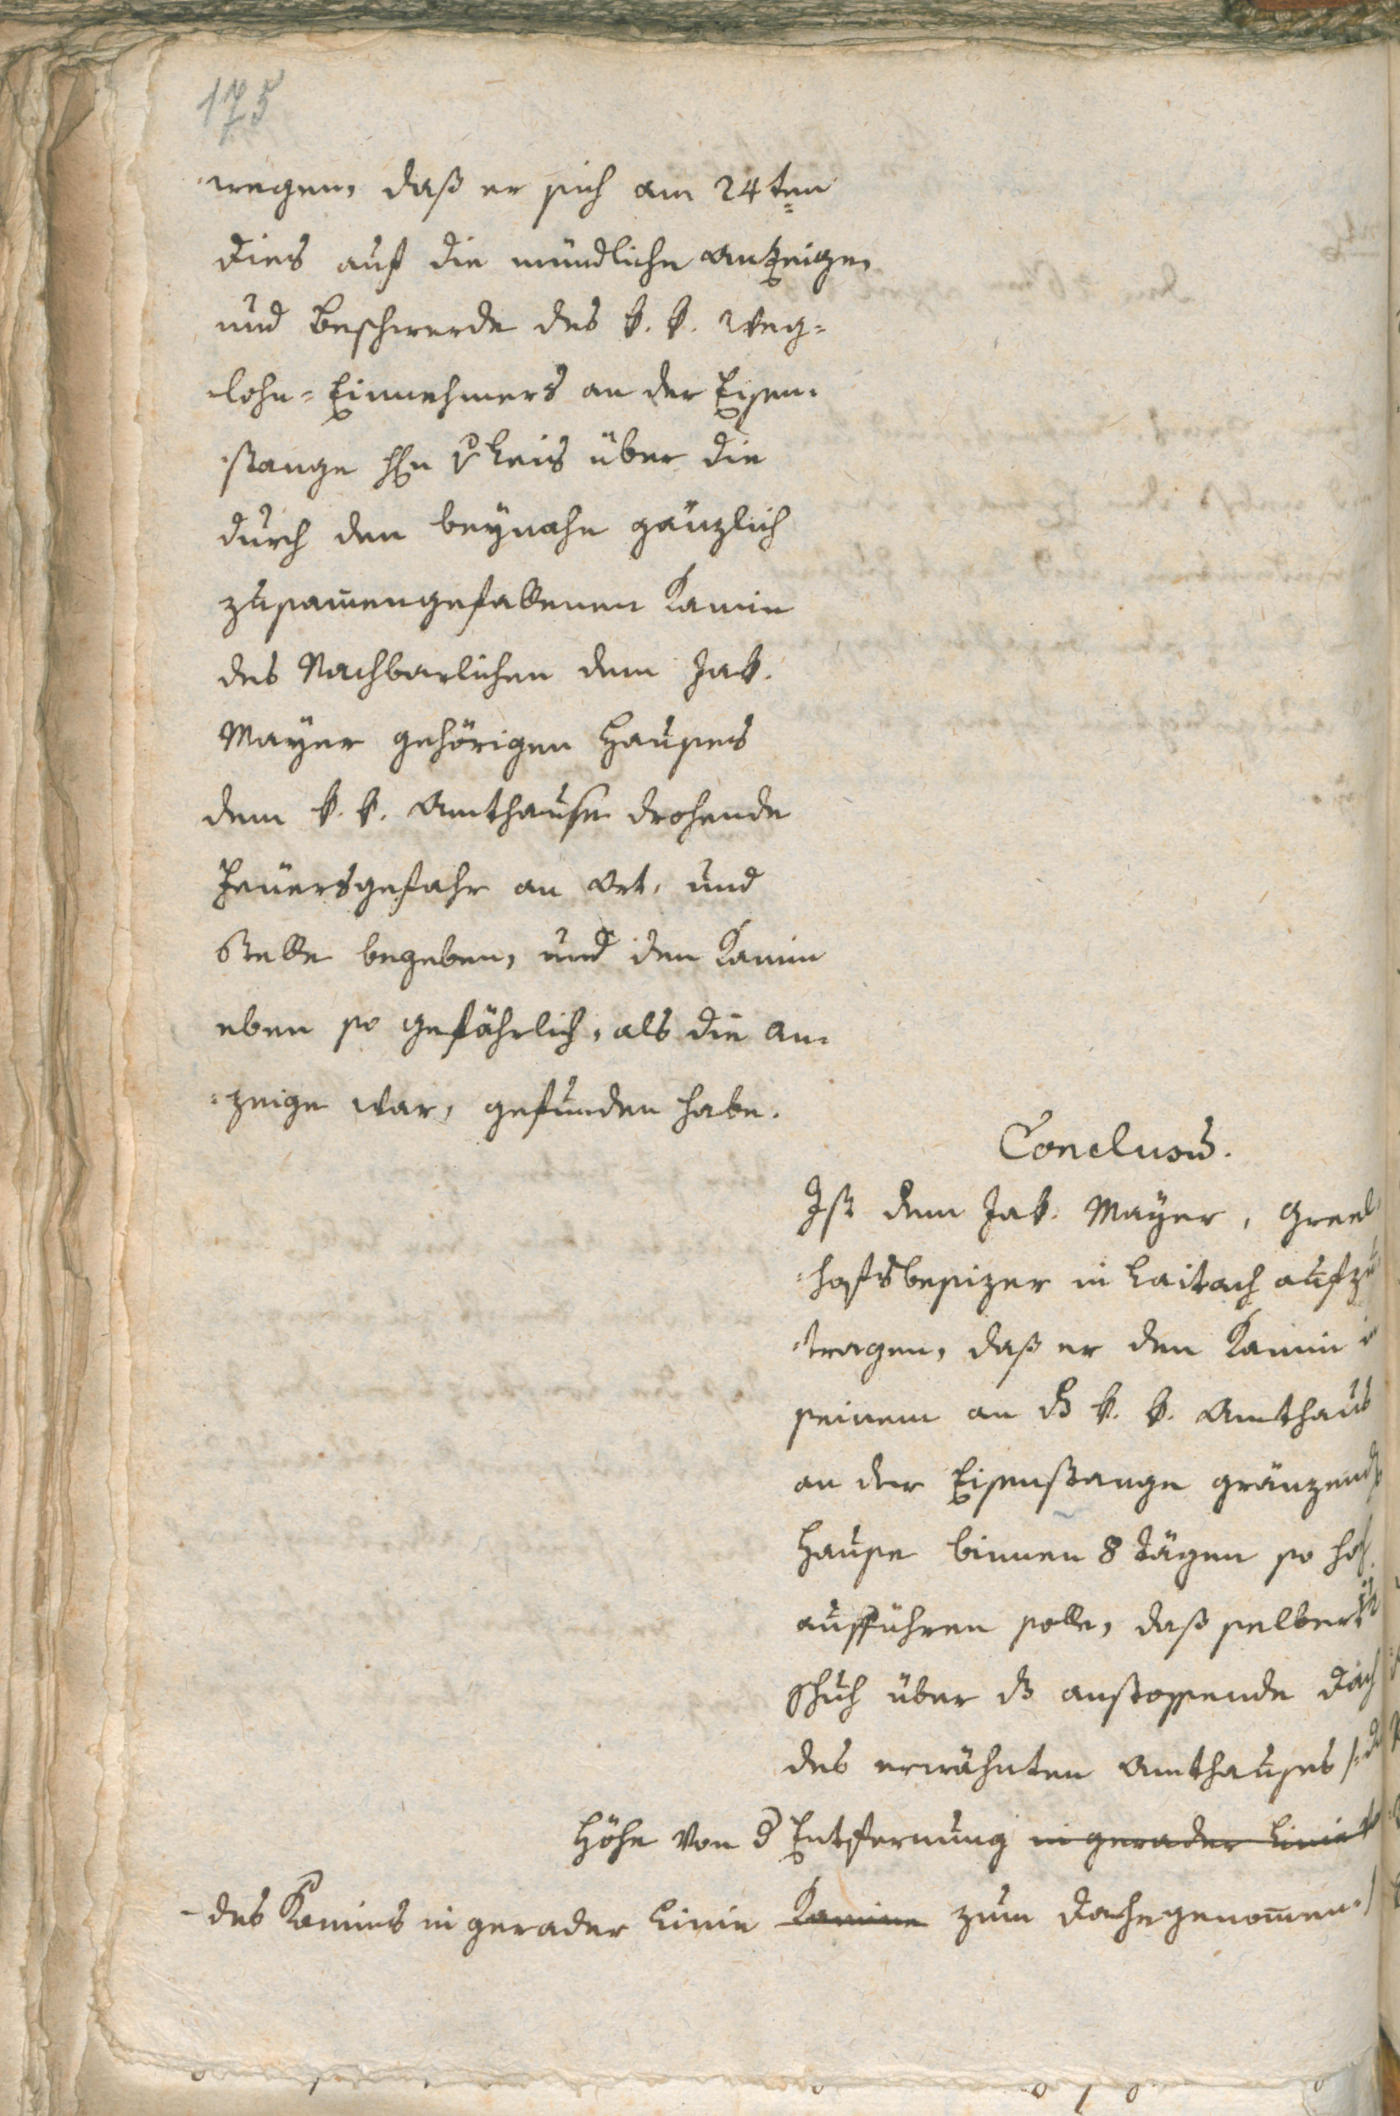 175
wegen, daß er sich am 24ten
dies auf die mündliche Anzeige,
und Beschwerde des k. k. Weg=
lohn=Einnehmers an der Eisen-
stange über die
durch den beynahe gänzlich
zusam̄engefallenen Kamin
des Nachbarlichen dem Jak.
Mayer gehörigen Hauses
dem k. k. Amthause drohende
Feuersgefahr an Ort, und
Stelle begeben, und den Kamin
eben so gefährlich, als die An-
=zeige war, gefunden habe.
Conclusū.
Ist dem Jak. Mayer,
=hofsbesizer in Laitach aufzu
=tragen, daß er den Kamin in
seinem an k. k. Amthaus
an der Eisenstange gränzend
Hause binnen 8 Tägen so hoch
aufführen solle, daß selber
Schuh über anstossende Dach
des erwähnten Amthauses /: d
Höhe von Entfernung in gerader Linie
des Kamins in gerader Linie Kamine zum Dache genom̄en :/